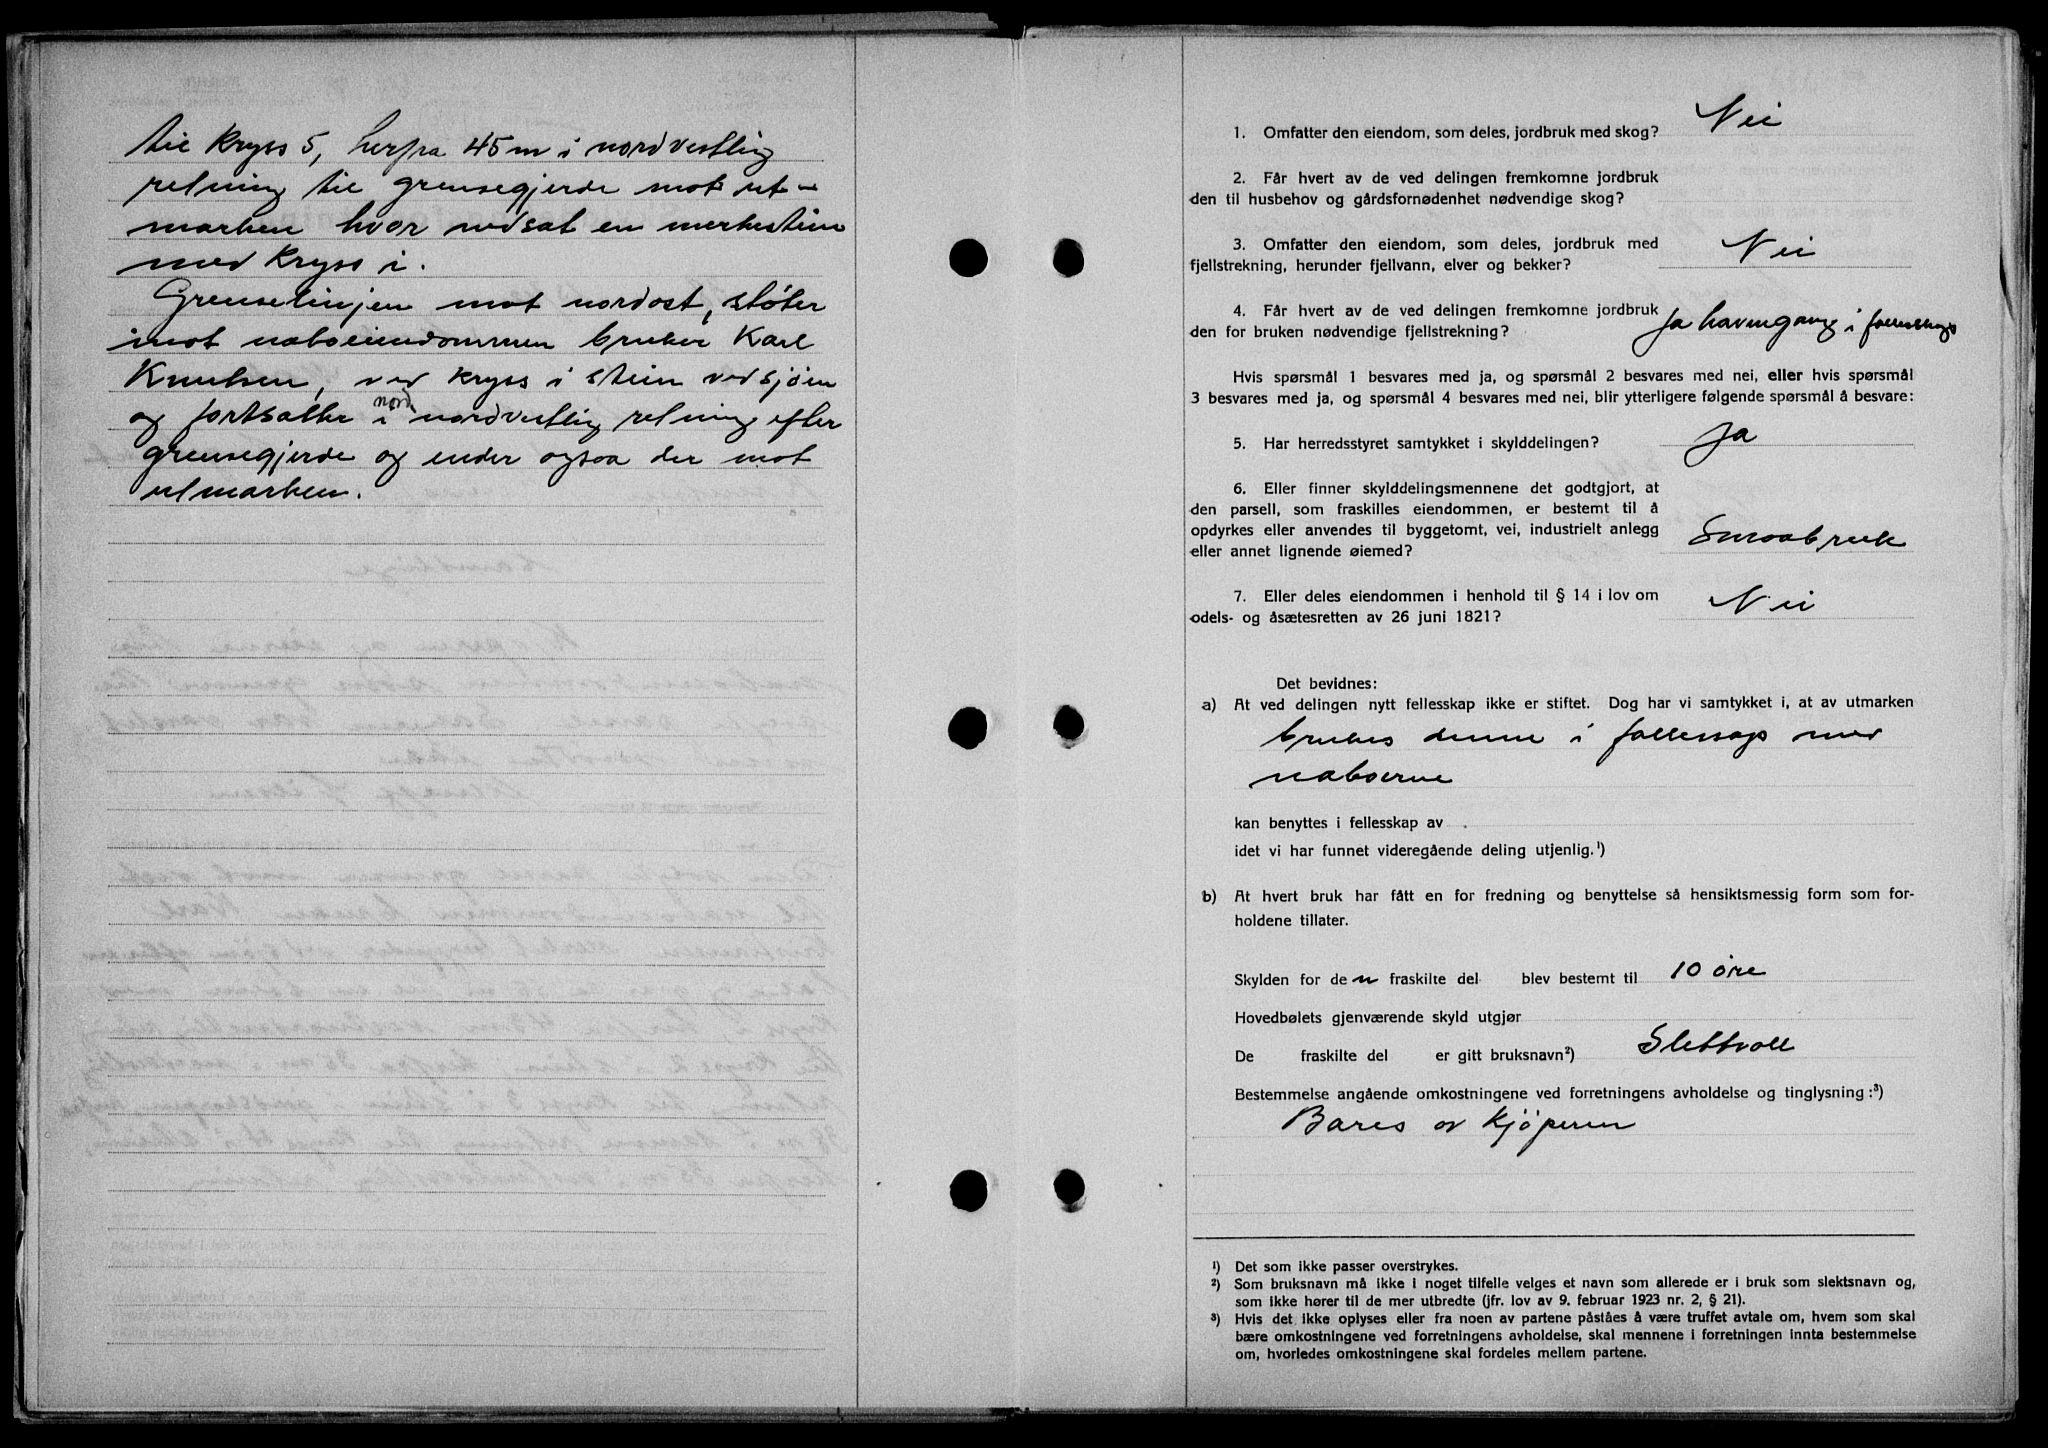 til kryss 5, herfra 45 m i nordvestlig
retning til grensegjerde mot ut-
marken hvor nedsat en merkestein
med kryss i.
Grenselinjen mot nordost, støter
mot naboeiendommen bruker Karl
Knutsen, ved kryss i stein ved sjøen
nord
og fortsatter i nordvestlig retning efter
grensegjerde og ender ogsaa der mot
utmarken.
1. Omfatter den eiendom, som deles, jordbruk med skog? Nei
2. Får hvert av de ved delingen fremkomne jordbruk
den til husbehov og gårdsfornødenhet nødvendige skog?
3. Omfatter den eiendom, som deles, jordbruk med
fjellstrekning, herunder fjellvann, elver og bekker? Nei
4. Får hvert av de ved delingen fremkomne jordbruk
den for bruken nødvendige fjellstrekning? Ja havnegang i
Hvis spørsmål 1 besvares med ja, og spørsmål 2 besvares med nei, eller hvis spørsmål
3 besvares med ja, og spørsmål 4 besvares med nei, blir ytterligere følgende spørsmål å besvare:
5. Har herredsstyret samtykket i skylddelingen? Ja
6. Eller finner skylddelingsmennene det godtgjort, at
den parsell, som fraskilles eiendommen, er bestemt til å
opdyrkes eller anvendes til byggetomt, vei, industrielt anlegg
eller annet lignende øiemed? Smaabruk
7. Eller deles eiendommen i henhold til § 14 i lov om
odels- og åsætesretten av 26 juni 1821? Nei
Det bevidnes:
a) At ved delingen nytt fellesskap ikke er stiftet. Dog har vi samtykket i, at av utmarken
brukes denne i fallesskap med
naboerne
kan benyttes i fellesskap av
idet vi har funnet videregående deling utjenlig.¹)
b) At hvert bruk har fått en for fredning og benyttelse så hensiktsmessig form som for-
holdene tillater.
Skylden for den fraskilte del blev bestemt til 10 øre
Hovedbølets gjenværende skyld utgjør
De fraskilte del er gitt bruksnavn²) Slettvoll
Bestemmelse angående omkostningene ved forretningens avholdelse og tinglysning:³)
Bæres av kjøperen
¹) Det som ikke passer overstrykes.
²) Som bruksnavn må ikke i noget tilfelle velges et navn som allerede er i bruk som slektsnavn og,
som ikke hører til de mer utbredte (jfr. lov av 9. februar 1923 nr. 2, § 21).
³) Hvis det ikke oplyses eller fra noen av partene påståes å være truffet avtale om, hvem som skal
bære omkostningene ved forretningens avholdelse, skal mennene i forretningen innta bestemmelse
om, hvorledes omkostningene skal fordeles mellem partene.